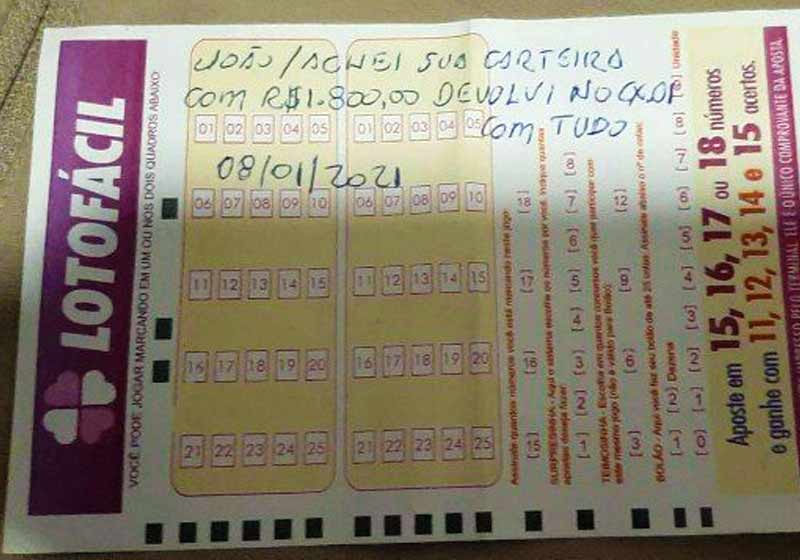 JOÃO/ACHEI SUA CARTEIRA
COM R$1.800,00 DEVOLVI NO CX.OP
COM TUDO
08/01/2021
LOTOFÁCIL
VOCÊ PODE JOGAR MARCANDO EM UM OU NOS DOIS QUADROS ABAIXO:
01 02 03 04 05
06 07 08 09 10
11 12 13 14 15
16 17 18 19 20
21 22 23 24 25
01 02 03 04 05
06 07 08 09 10
11 12 13 14 15
16 17 18 19 20
21 22 23 24 25
Assinale quantos números você está marcando neste jogo
[15] [16] [17] [18]
SURPRESINHA - Aqui o sistema escolhe os números por você. Indique quantas
apostas deseja fazer:
[1] [2] [3] [4] [5] [6] [7] [8]
TEIMOSINHA - Escolha em quantos concursos você quer participar com
este mesmo jogo (não é válido para Bolão):
[3] [6] [9] [12]
BOLÃO - Aqui você faz seu bolão de até 25 cotas. Assinale abaixo o nº de cotas:
[1] [2] Dezena
[0] [1] [2] [3] [4] [5] [6] [7] [8] [9] Unidade
Aposte em 15, 16, 17 ou 18 números
e ganhe com 11, 12, 13, 14 e 15 acertos.
IMPRESSO PELO TERMINAL. ELE É O ÚNICO COMPROVANTE DA APOSTA.